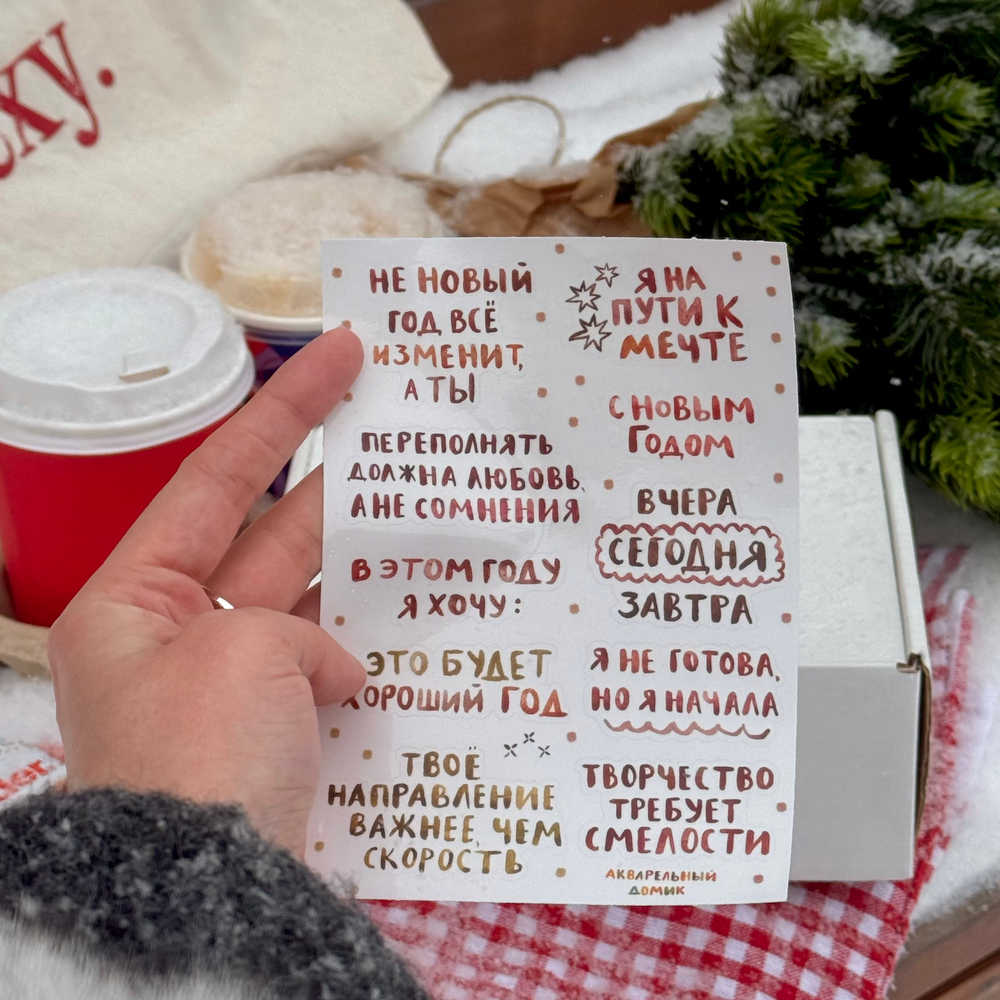 НЕ НОВЫЙ
ГОД ВСЁ
ИЗМЕНИТ,
А ТЫ
ПЕРЕПОЛНЯТЬ
ДОЛЖНА ЛЮБОВЬ,
А НЕ СОМНЕНИЯ
В ЭТОМ ГОДУ
Я ХОЧУ:
ЭТО БУДЕТ
ХОРОШИЙ ГОД
ТВОЁ
НАПРАВЛЕНИЕ
ВАЖНЕЕ, ЧЕМ
СКОРОСТЬ
Я НА
ПУТИ К
МЕЧТЕ
С НОВЫМ
ГОДОМ
ВЧЕРА
СЕГОДНЯ
ЗАВТРА
Я НЕ ГОТОВА,
НО Я НАЧАЛА
ТВОРЧЕСТВО
ТРЕБУЕТ
СМЕЛОСТИ
АКВАРЕЛЬНЫЙ
ДОМИК